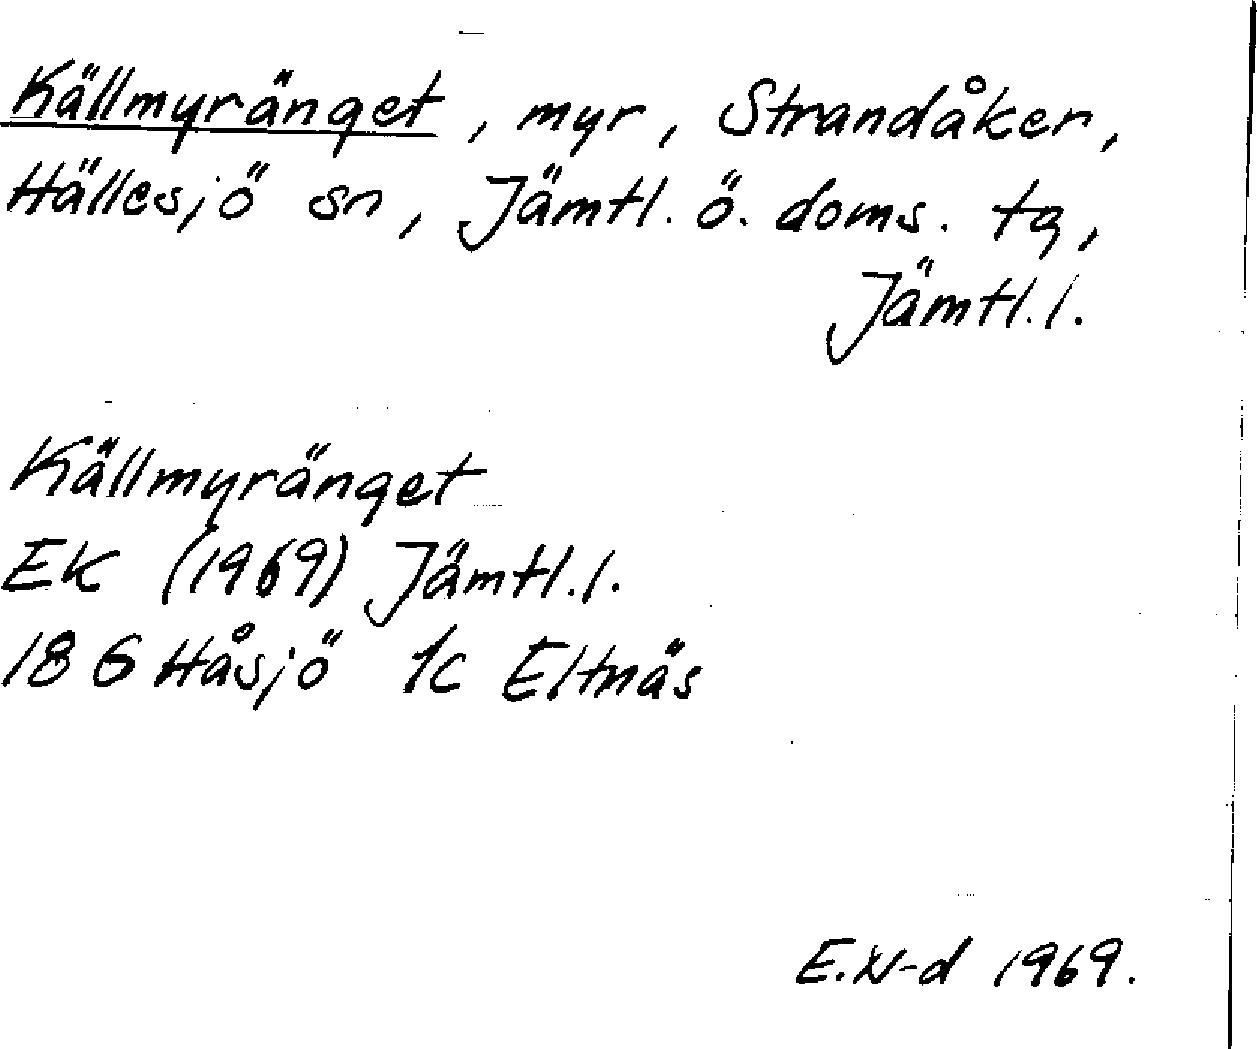 Källmyränget, myr, Strandåker,
Hällesjö sn, Jämtl. ö. doms. tg,
Jämtl.l.
Källmyränget
EK (1969) Jämtl.l.
18 G Håsjö 1c Eltnäs
E.N-d 1969.